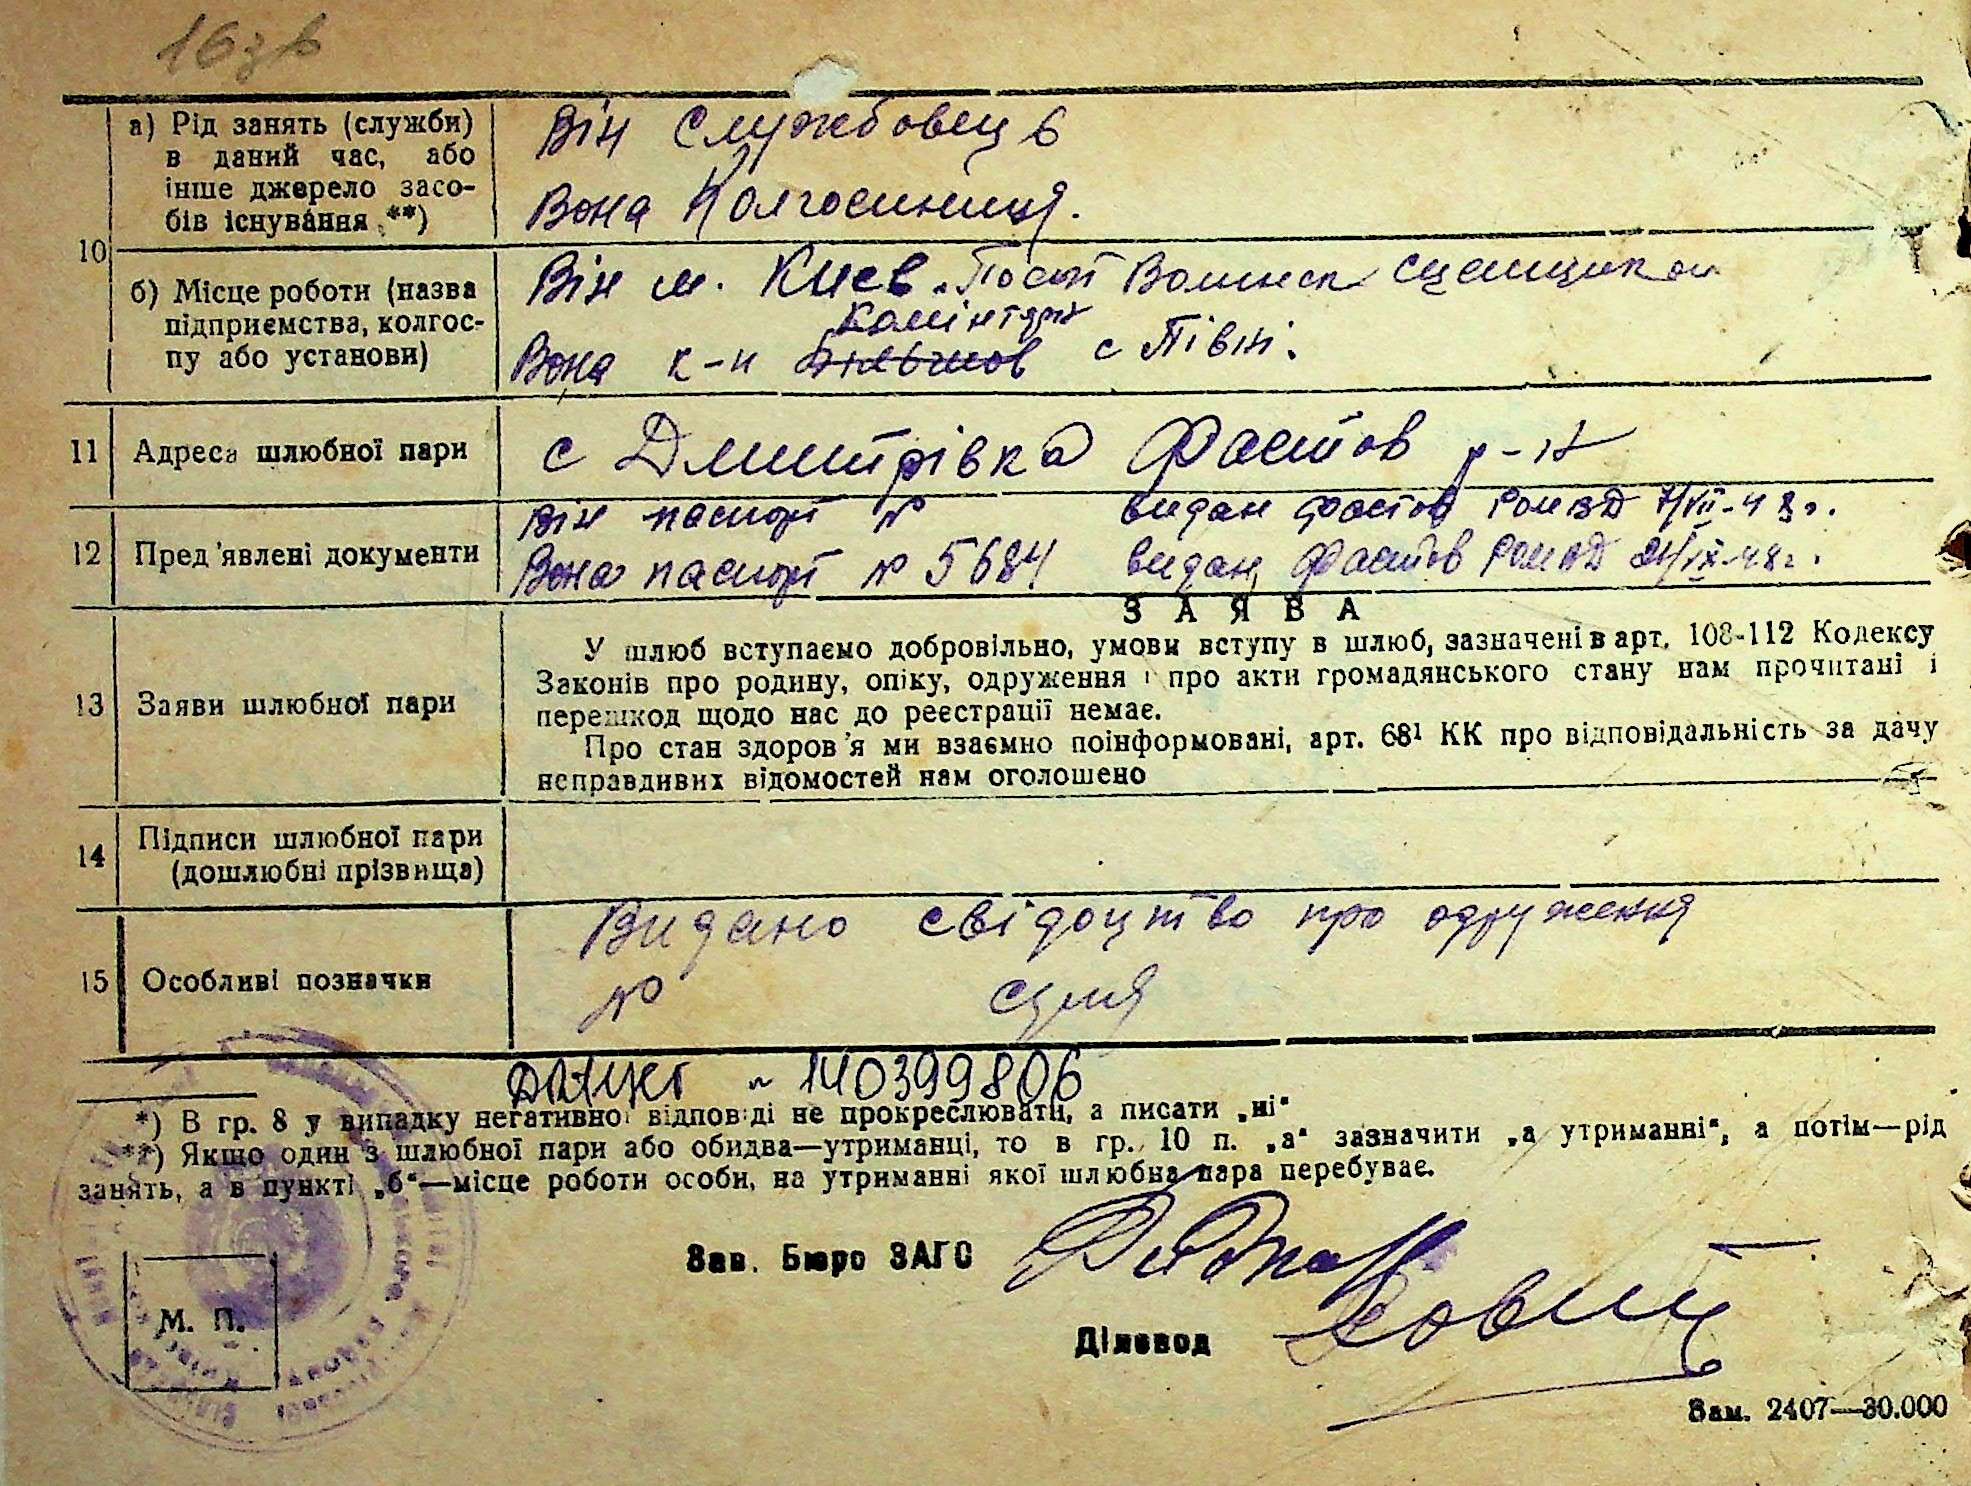 16зв
а) Рід занять (служби)
в даний час, або
інше джерело засо-
бів існування **)
Він Службовець
Вона Колгоспниця.
10
б) Місце роботи (назва
підприємства, колгос-
пу або установи)
Він м. Киев. Пост Волинск сцепщиком
Комінтерн
Вона к-п с Півні.
11 Адреса шлюбної пари
с Дмитрівка Фастов р-н
12 Пред'явлені документи
Він паспорт № видан Фастов РОМВД 7/VII-48г.
Вона паспорт № 5684 видан Фастов РОМВД 21/IX-48г.
ЗАЯВА
13 Заяви шлюбної пари
У шлюб вступаємо добровільно, умови вступу в шлюб, зазначені в арт. 108-112 Кодексу
Законів про родину, опіку, одруження і про акти громадянського стану нам прочитані і
перешкод щодо нас до реєстрації немає.
Про стан здоров'я ми взаємно поінформовані, арт. 68¹ КК про відповідальність за дачу
неправдивих відомостей нам оголошено
14 Підписи шлюбної пари
(дошлюбні прізвища)
15 Особливі позначки
Видано свідоцтво про одруження
№
140399806
*) В гр. 8 у випадку негативної відповіді не прокреслювати, а писати „ні“
**) Якщо один з шлюбної пари або обидва—утриманці, то в гр. 10 п. „а“ зазначити „а утриманні“, а потім—рід
занять, а в пункті „б“—місце роботи особи, на утриманні якої шлюбна пара перебуває.
Зав. Бюро ЗАГС
М. П.
Діловод
Зам. 2407—30.000